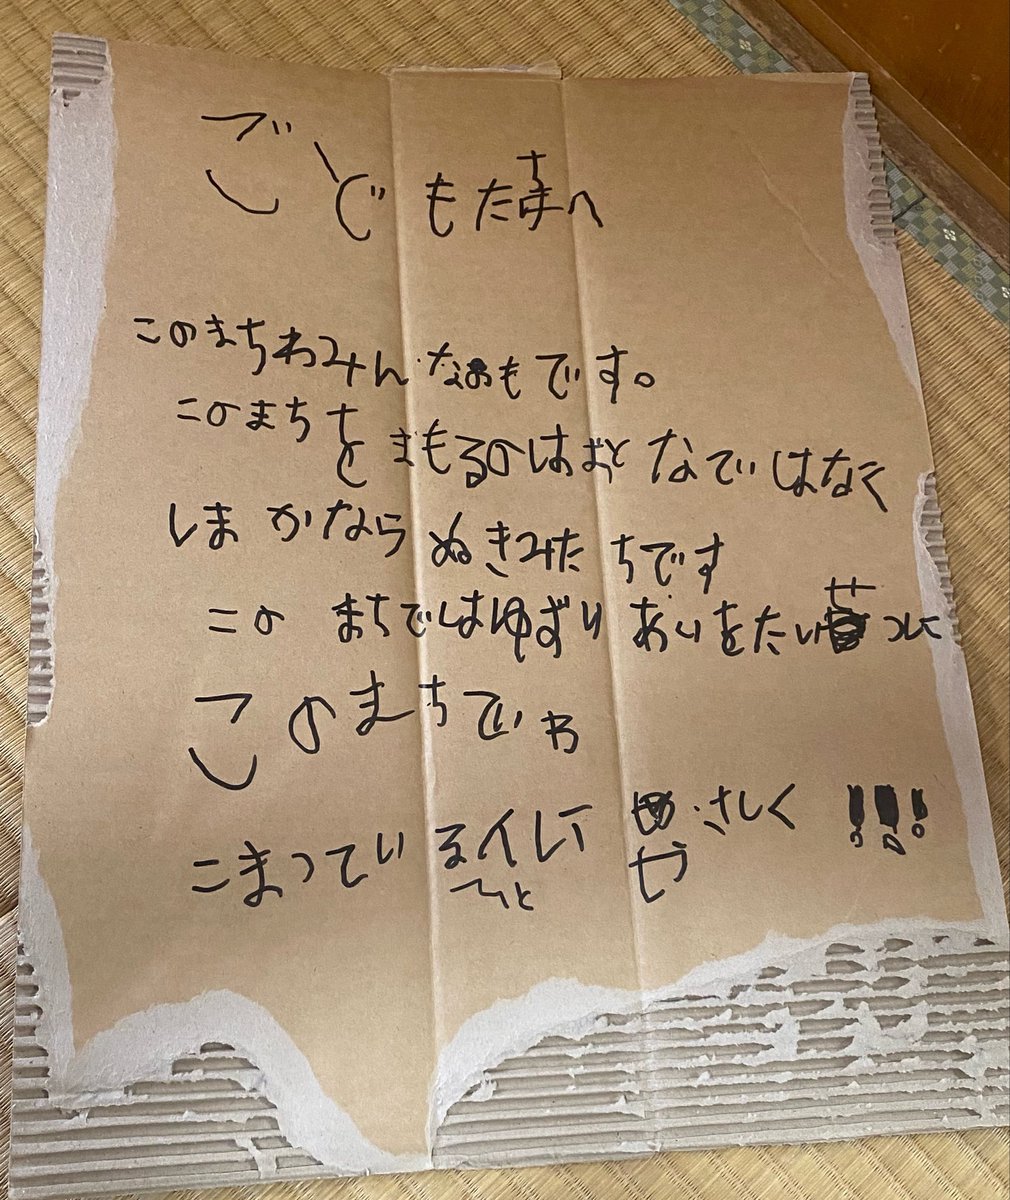 ごどもたちへ
このまちわみんなおもです。
このまちをまもるのはおとなでいはなく
しまかならぬきみたちです
このまちではゆずりあいをたいせつに
このまちでいわ
こまっているイレエやさしく!!!
ひと